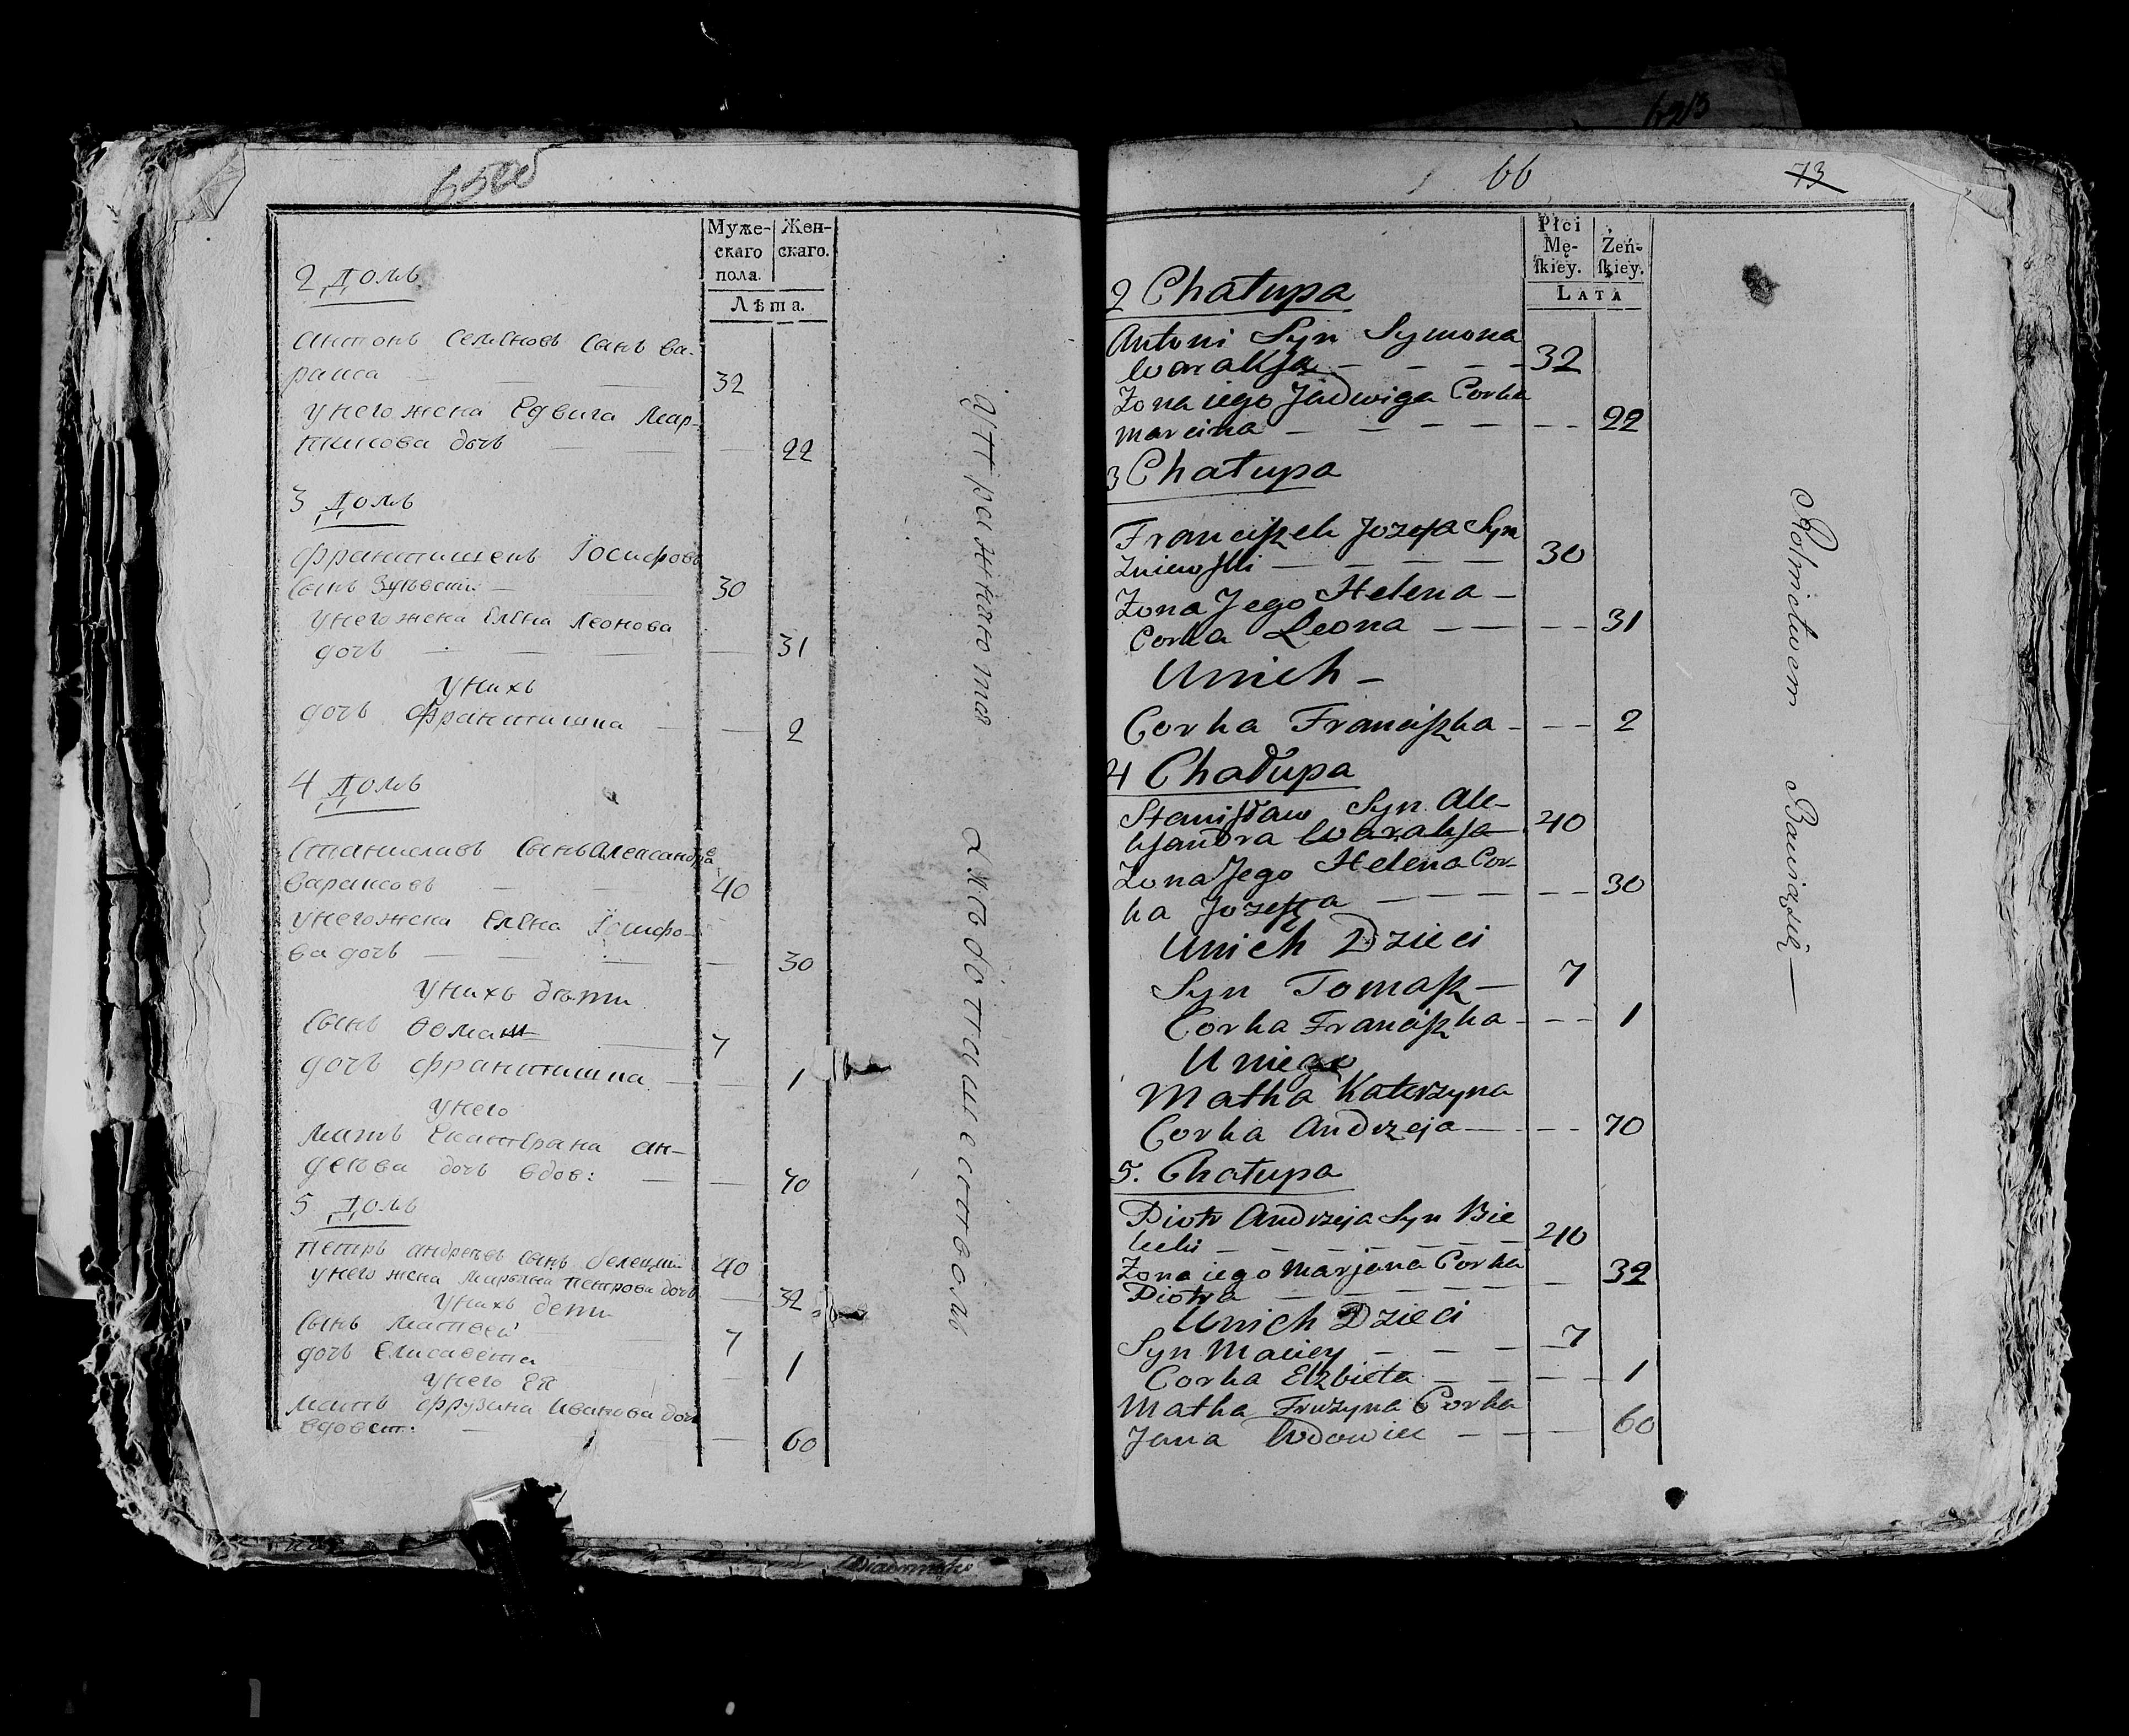 Муже-
скаго
пола.
Жен-
скаго.
Лѣта.
2 Домъ
Антонъ Семеновъ Сынъ Ва-
ракса 32
У него жена Едвига Мар-
тинова дочь 22
3 Домъ
Францишекъ Іосифовъ
Сынъ 30
У него жена Елена Леонова
дочь 31
У нихъ
дочь Францишка 2
4 Домъ
Станиславъ Сынъ Александра
Вараксовъ 40
У него жена Елена Іосифо-
ва дочь 30
У нихъ дѣти
Сынъ Ѳомаш 7
дочь Францишка 1
У него
Мать Екатерана Ан-
дрѣева дочь вдов: 70
5 Домъ
Петръ Андреевъ сынъ Белецки 40
У него жена Марьяна Петрова дочь 32
У нихъ дети
Сынъ Матвей 7
дочь Елисавета 1
У него
Мать Фрузина Иванова дочь
вдовст: 60
Хлѣбопашествомъ
66
73
Płci
Mę-
ſkiey.
Żeń-
ſkiey.
LATA
2 Chałupa
Antoni Syn Symona
Waraksa 32
Zona iego Jadwiga Corka
Marcina 22
3 Chałupa
Franciszek Jozefa Syn
30
Zona Jego Helena
Corka Leona 31
Unich
Corka Franciszka 2
4 Chałupa
Stanisław Syn Ale-
ksandra Waraksa 40
Zona Jego Helena Cor-
ka Jozefa 30
Unich Dzieci
Syn Tomasz 7
Corka Franciszka 1
U niego
Matka Katerzyna
Corka Andrzeja 70
5. Chałupa
Piotr Andrzeja Syn Bie
lecki 40
Zona iego Marjana Corka
Piotra 32
Unich Dzieci
Syn Maciey 7
Corka Elzbieta 1
Matka Fruzyna Corka
Jana Wdowiec 60
Rolnictwem Bawiąsię